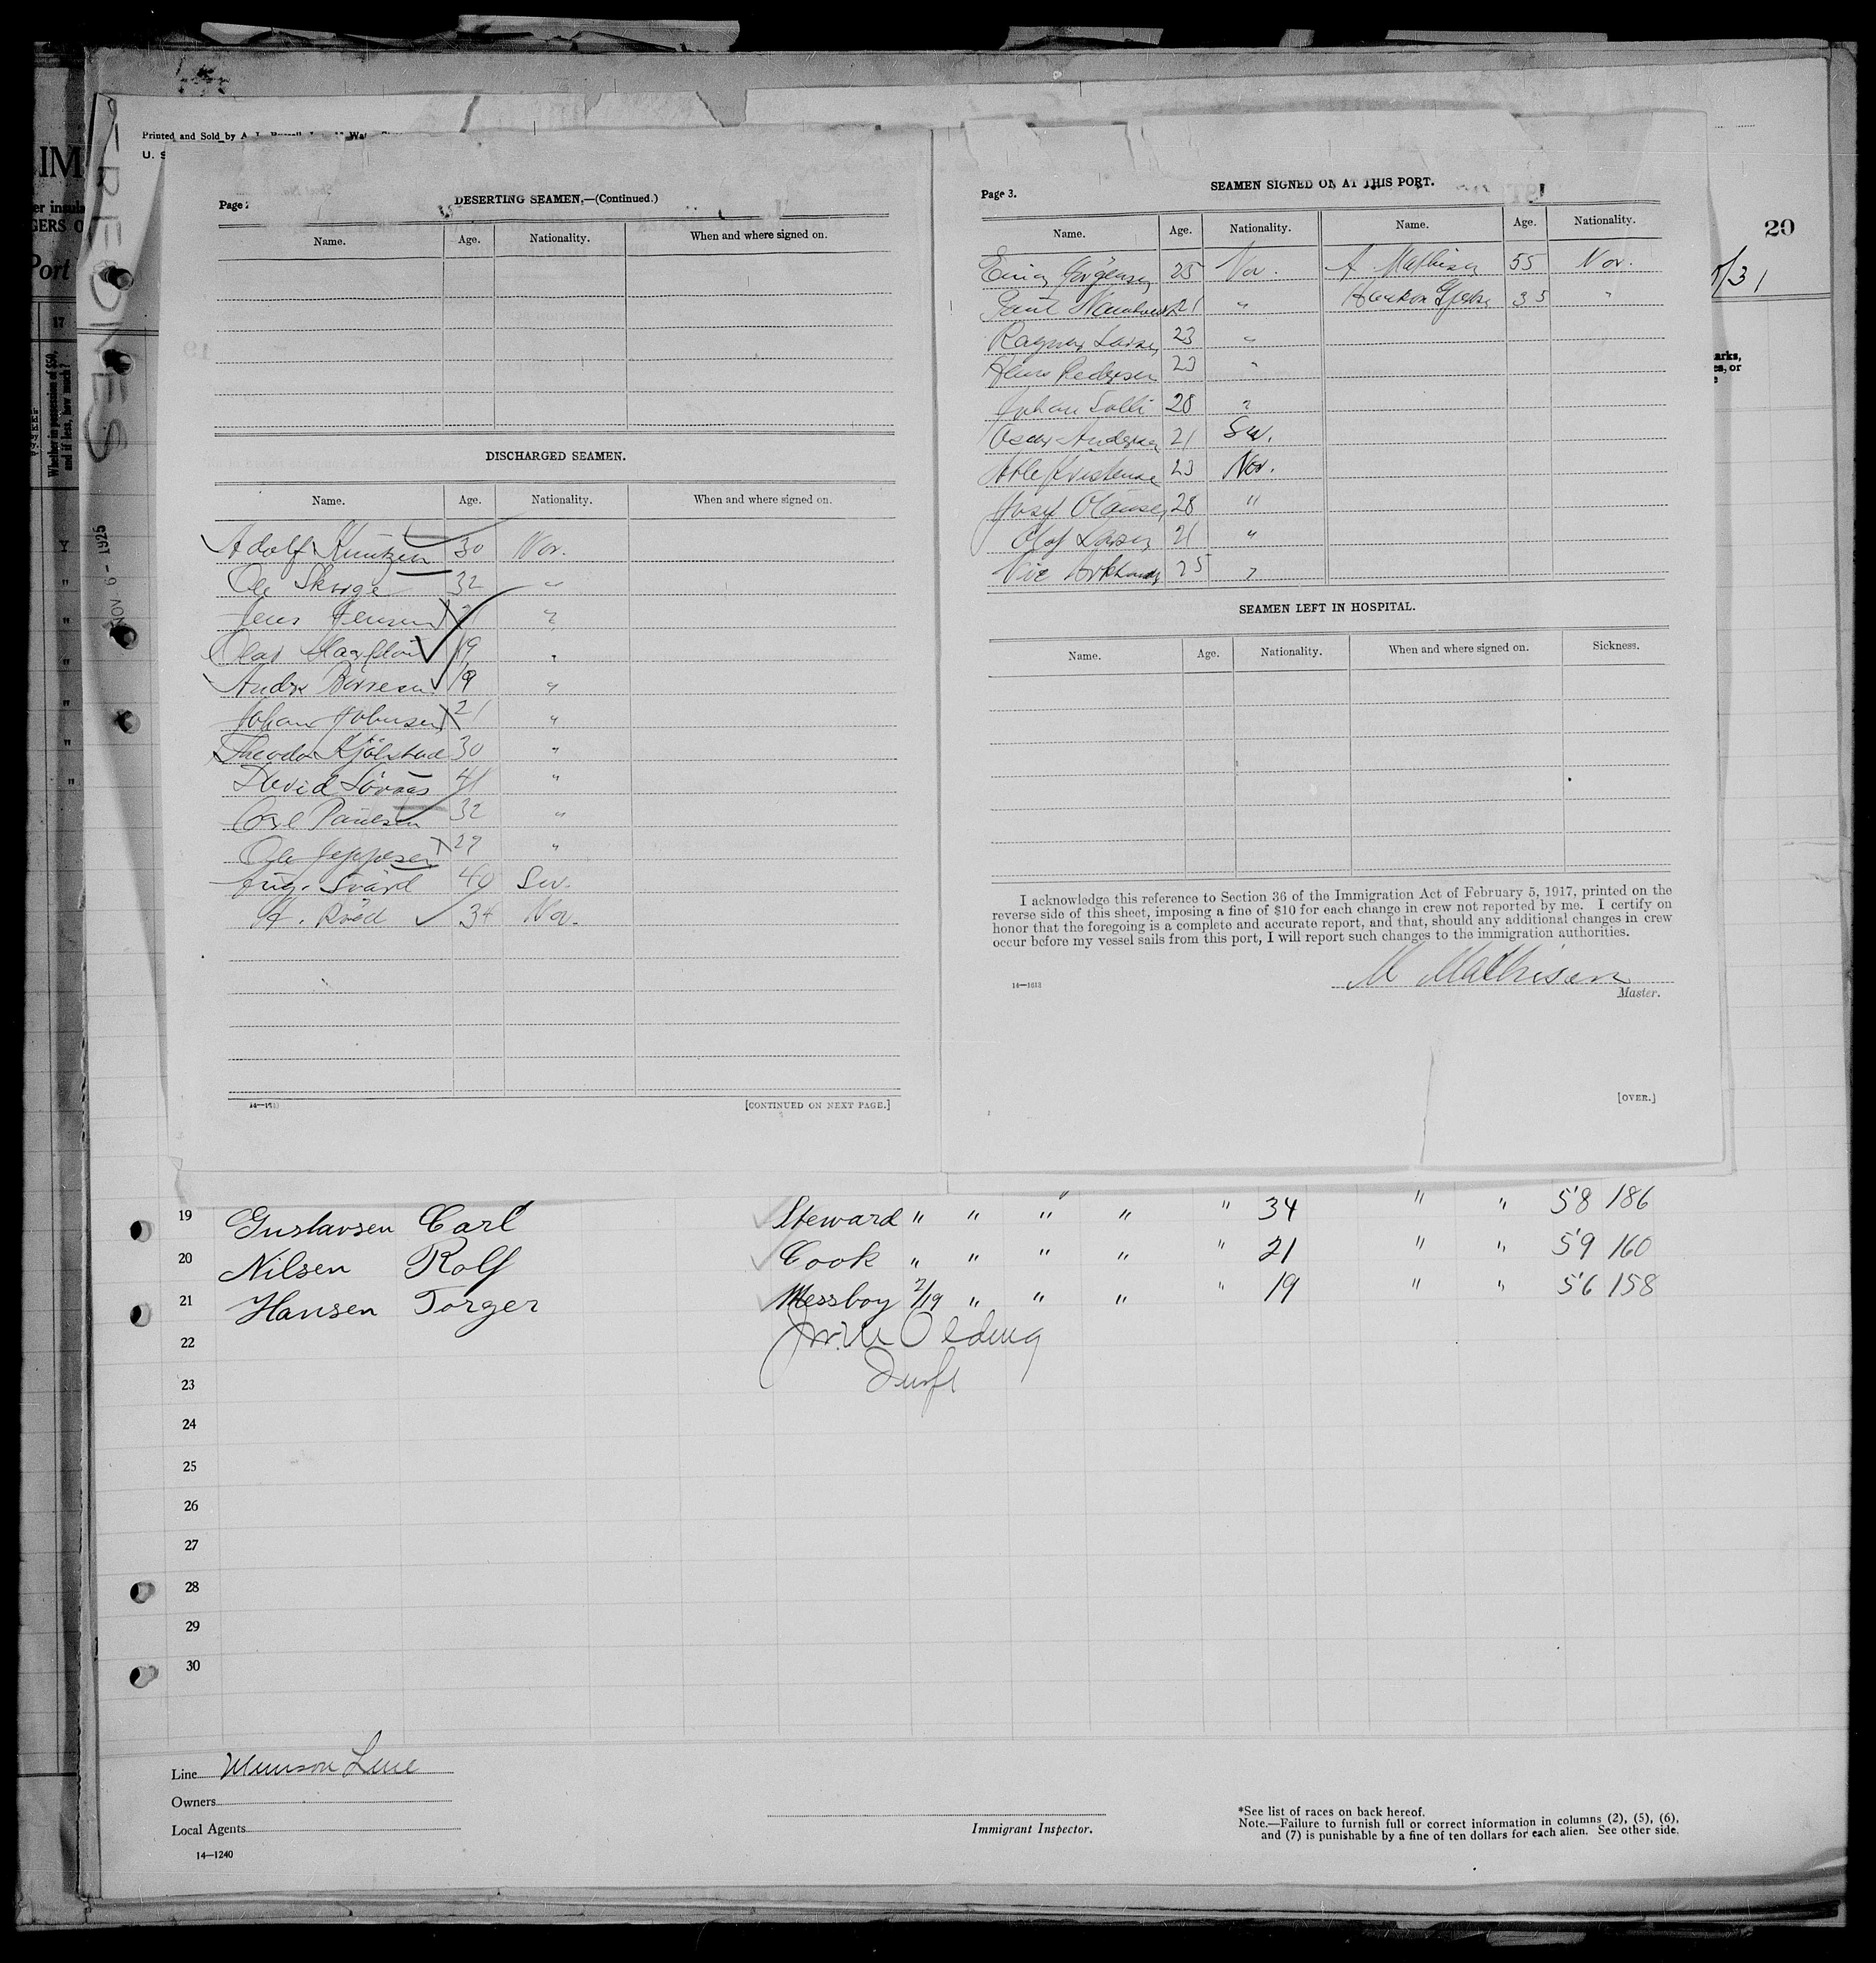 Printed and Sold by
U. S
IM
GERS O
Port
17
Whether in possession of $50, and if less, how much?
FREDNES
NOV 6 - 1925
20
Page
DESERTING SEAMEN.—(Continued.)
Name. Age. Nationality. When and where signed on.
DISCHARGED SEAMEN.
Name. Age. Nationality. When and where signed on.
Adolf Knutzen 30 Nor.
Ole Skorge 32 "
Jens Jensen "
Olav 19 "
Andr 19 "
Johan Johnsen 21 "
Theodor Kjölstad 30 "
David 41 "
Carl Paulsen 32 "
Ole Jeppesen 29 "
Aug. Svärd 40 Sw.
Röed 34 Nor.
14—1613
[CONTINUED ON NEXT PAGE.]
Page 3.
SEAMEN SIGNED ON AT THIS PORT.
Name. Age. Nationality. Name. Age. Nationality.
Jörgensen 25 Nor. A Mathisen 55 Nor.
21 " Haakon 35 "
Ragnar Larsen 23 "
Hans Pedersen 23 "
Johan Solli 28 "
Oscar Andersen 21 Sw.
23 Nor.
Josef Olausen 28 "
Olaf Larsen 21 "
25 "
SEAMEN LEFT IN HOSPITAL.
Name. Age. Nationality. When and where signed on. Sickness.
I acknowledge this reference to Section 36 of the Immigration Act of February 5, 1917, printed on the
reverse side of this sheet, imposing a fine of $10 for each change in crew not reported by me. I certify on
honor that the foregoing is a complete and accurate report, and that, should any additional changes in crew
occur before my vessel sails from this port, I will report such changes to the immigration authorities.
M Mathisen
14—1613
Master.
[OVER.]
19 Gustavsen Carl Steward " " " " " 34 " " 5'8 186
20 Nilsen Rolf Cook " " " " " 21 " " 5'9 160
21 Hansen Torger Messboy 2/19 " " " " 19 " " 5'6 158
22
23
24
25
26
27
28
29
30
Line Munson Line
Owners
Local Agents
14—1240
Immigrant Inspector.
*See list of races on back hereof.
Note.—Failure to furnish full or correct information in columns (2), (5), (6),
and (7) is punishable by a fine of ten dollars for each alien. See other side.